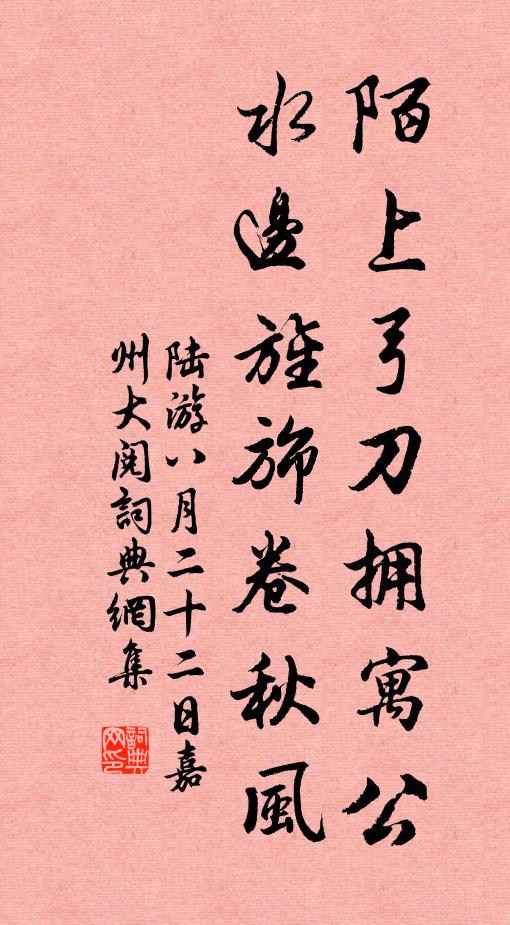 陌上弓刀拥寓公
水邊旌旆卷秋風
陆游八月二十二日嘉
州大阅詞典網集
詞典網印